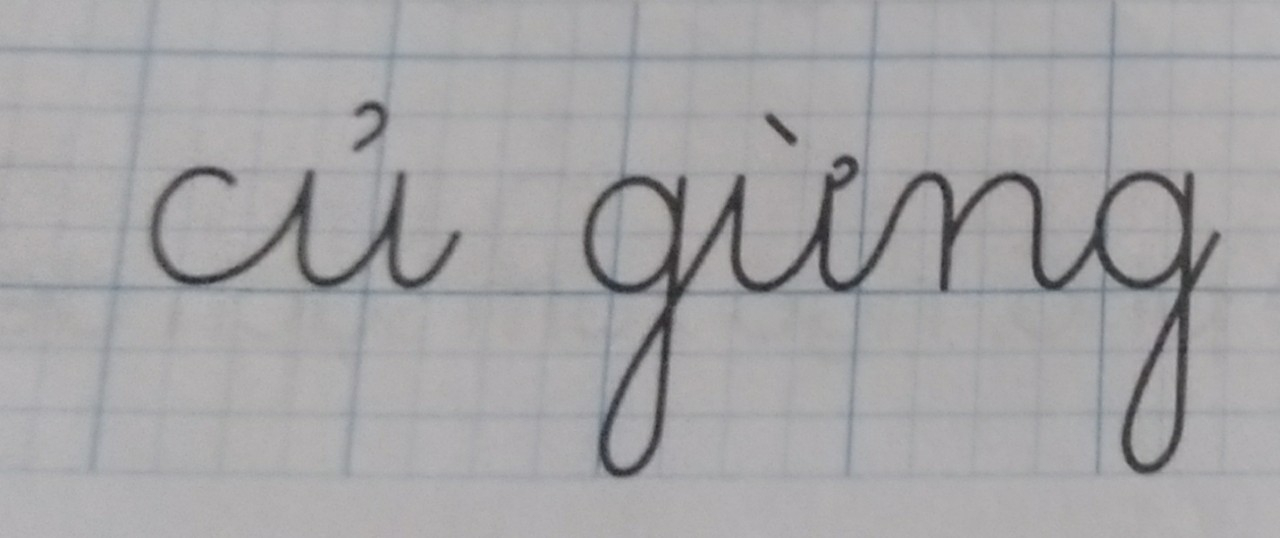 củ gừng